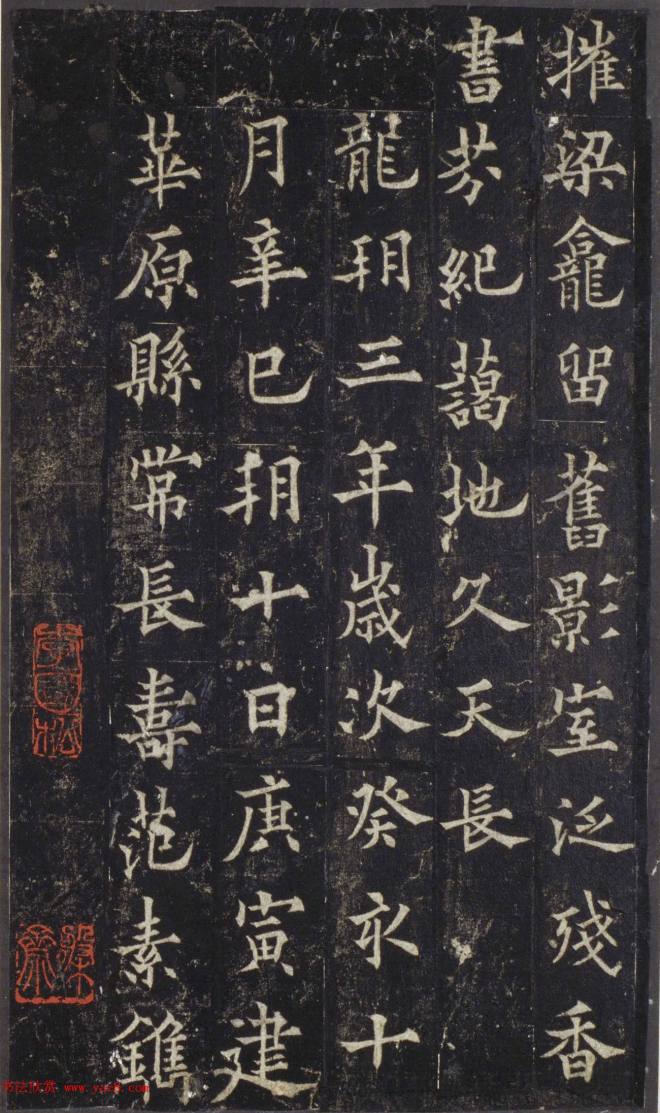 摧梁龕留舊影室泛殘香
書芬紀藹地久天長
龍朔三年歲次癸亥十
月辛巳朔十日庚寅建
華原縣常長壽范素鐫
李國松
槃齋
书法欣赏 www.yac8.com